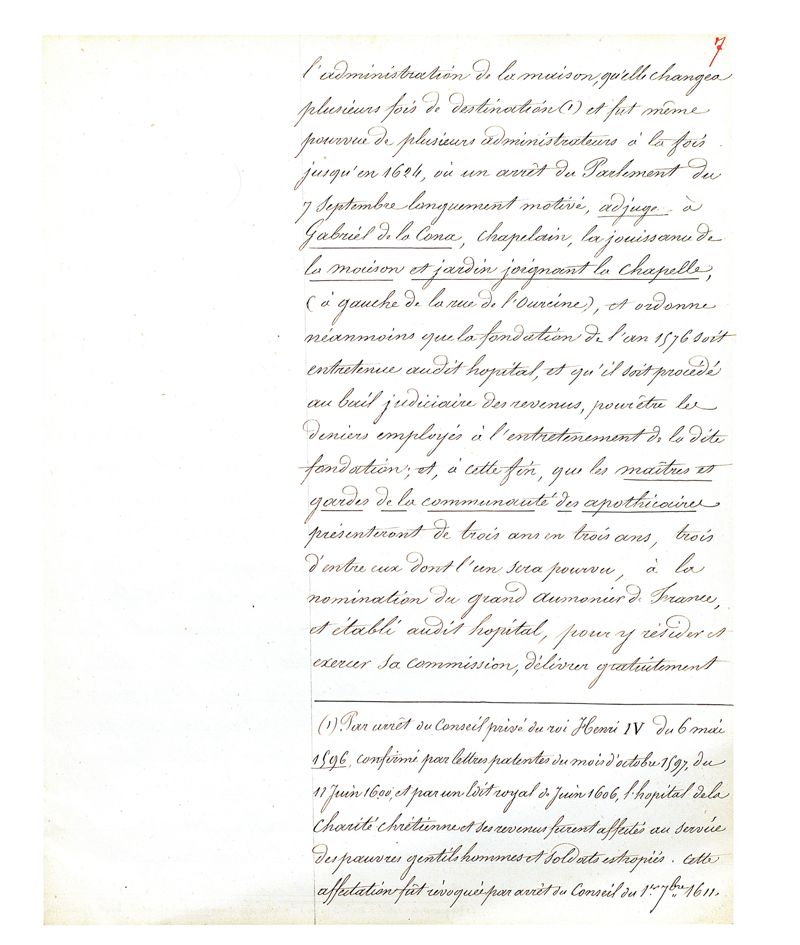 7
l'administration de la maison, qu'elle changea
plusieurs fois de destination (1) et fut même
pourvue de plusieurs administrateurs à la fois
jusqu'en 1624, où un arrêt du Parlement du
7 Septembre longuement motivé, adjuge à
Gabriel de la Cona, chapelain, la jouissance de
la maison et jardin joignant la chapelle,
(à gauche de la rue de l'Ourcine), et ordonne
néanmoins que la fondation de l'an 1576 soit
entretenue audit hopital, et qu'il soit procédé
au bail judiciaire des revenus, pour être les
deniers employés à l'entretenement de la dite
fondation; et, à cette fin, que les maîtres et
gardes de la communauté des apothicaires
présenteront de trois ans en trois ans, trois
d'entre eux dont l'un sera pourvu, à la
nomination du grand aumonier de France,
et établi audit hopital, pour y résider et
exercer sa commission, délivrer gratuitement
(1) Par arrêt du Conseil privé du roi Henri IV du 6 mai
1596, confirmé par lettres patentes du mois d'octobre 1597, du
11 Juin 1600, et par un Edit royal de Juin 1606, l'hopital de la
Charité Chrétienne et ses revenus furent affectés au service
des pauvres gentilshommes et Soldats estropiés. Cette
affectation fut révoquée par arrêt du Conseil du 1er 7bre 1611.